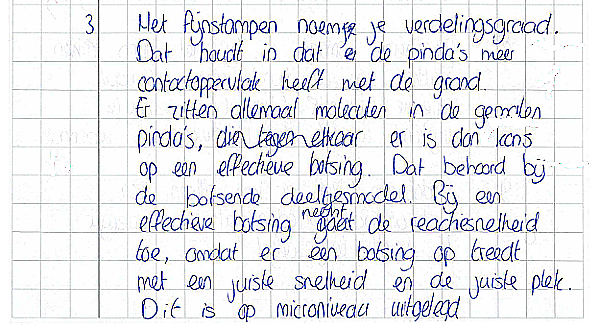 3 Het fijnstampen noem je verdelingsgraad.
Dat houdt in dat de pinda's meer
contactoppervlak heeft met de grond.
Er zitten allemaal moleculen in de gemalen
pinda's, die tegen elkaar er is dan kans
op een effectieve botsing. Dat behoord bij
de botsende deeltjesmodel. Bij een
effectieve botsing neemt de reactiesnelheid
toe, omdat er een botsing op treedt
met een juiste snelheid en de juiste plek.
Dit is op microniveau uitgelegd